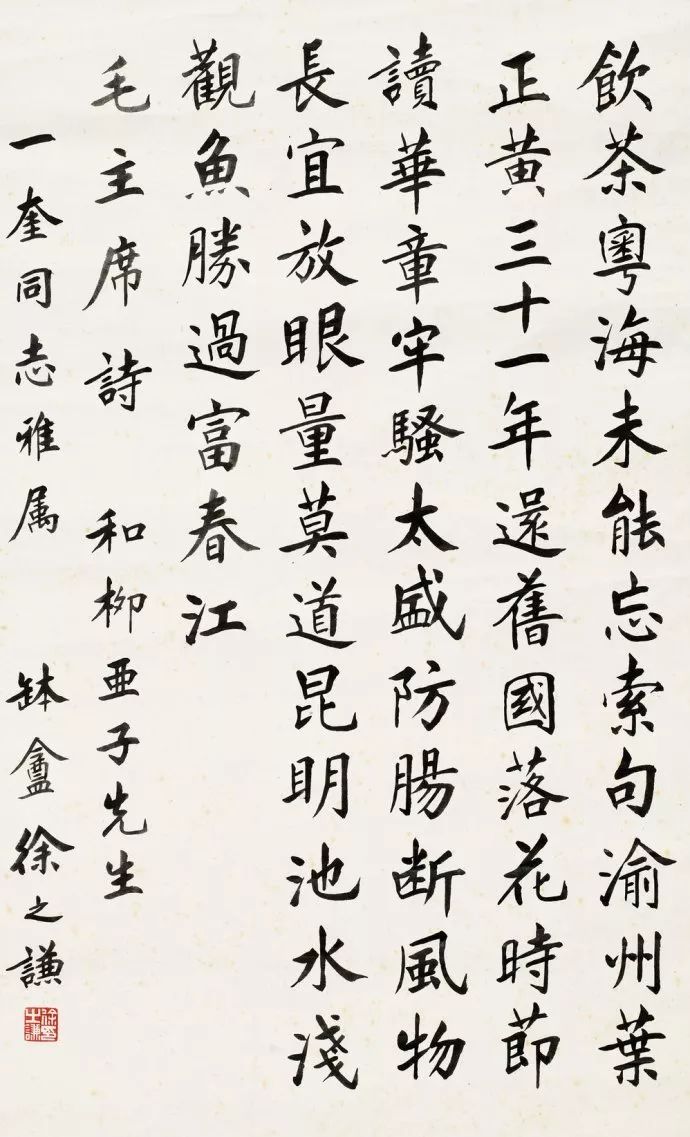 飲茶粵海未能忘索句渝州葉
正黃三十一年還舊國落花時節
讀華章牢騷太盛防腸断風物
長宜放眼量莫道昆明池水淺
觀魚勝過富春江
毛主席詩 和柳亜子先生
一奎同志雅属 缽盦徐之謙
徐之謙印